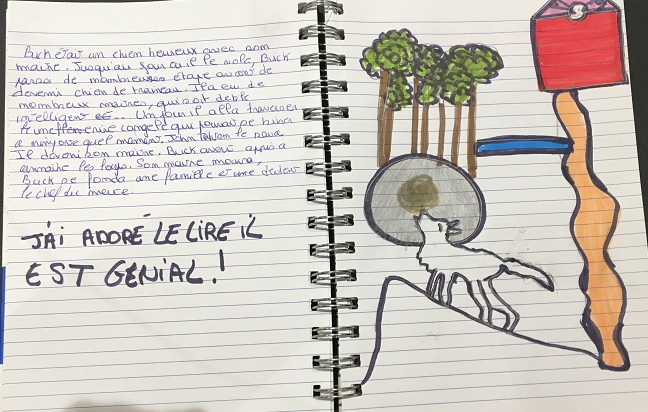 Buck était un chien heureux avec son
maitre. Jusqu'au jour ou il le vole, Buck
passa de nombreuses étape avant de
devenir chien de traineau. Il a eu de
nombreux maitres, qui
intelligent et... Un jour il alla traverser
congelé qui pouvait se briser
a n'importe quel moment. John
Il devint son maitre. Buck avait appris a
connaitre les loups. Son maitre mouru,
Buck se fonda une famille et
le chef du meute.
J'AI ADORÉ LE LIRE IL
EST GÉNIAL!